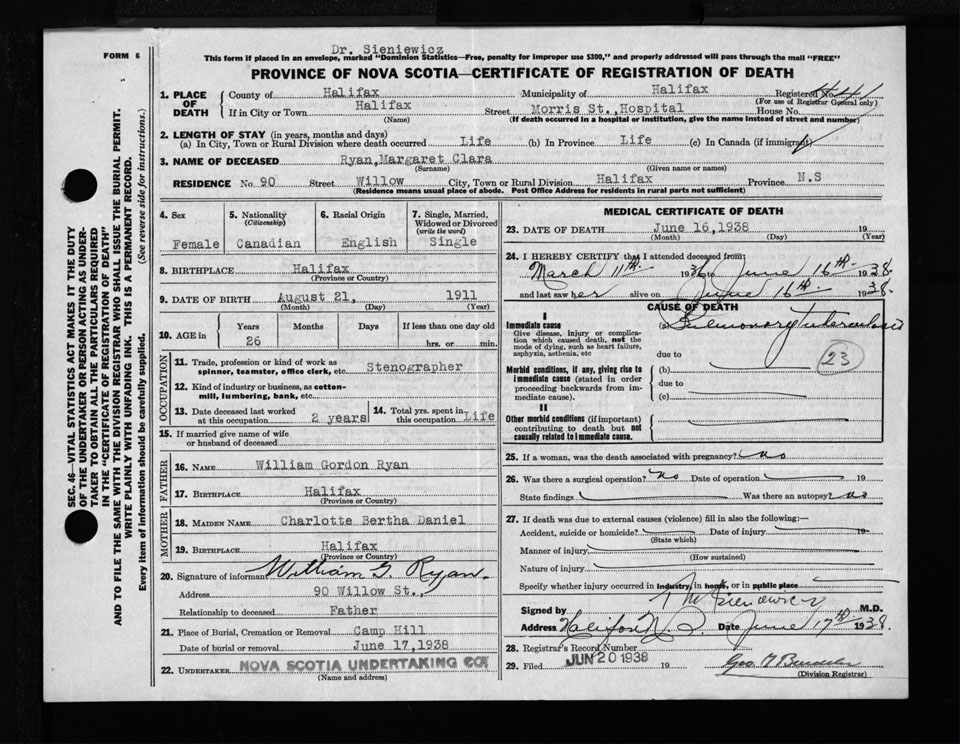 Dr. Sieniewicz
FORM 6
This form if placed in an envelope, marked "Dominion Statistics—Free, penalty for improper use $300," and properly addressed will pass through the mail "FREE"
PROVINCE OF NOVA SCOTIA—CERTIFICATE OF REGISTRATION OF DEATH
SEC. 46—VITAL STATISTICS ACT MAKES IT THE DUTY
OF THE UNDERTAKER OR PERSON ACTING AS UNDER-
TAKER TO OBTAIN ALL THE PARTICULARS REQUIRED
IN THE "CERTIFICATE OF REGISTRATION OF DEATH"
AND TO FILE THE SAME WITH THE DIVISION REGISTRAR WHO SHALL ISSUE THE BURIAL PERMIT.
WRITE PLAINLY WITH UNFADING INK. THIS IS A PERMANENT RECORD.
Every item of information should be carefully supplied. (See reverse side for instructions.)
1. PLACE OF DEATH
County of Halifax Municipality of Halifax Registered No.
(For use of Registrar General only)
If in City or Town Halifax Street Morris St., Hospital House No.
(Name) (If death occurred in a hospital or institution, give the name instead of street and number)
2. LENGTH OF STAY (in years, months and days)
(a) In City, Town or Rural Division where death occurred Life (b) In Province Life (c) In Canada (if immigrant)
3. NAME OF DECEASED Ryan, Margaret Clara
(Surname) (Given name or names)
RESIDENCE No. 90 Street Willow City, Town or Rural Division Halifax Province N.S
(Residence means usual place of abode. Post Office Address for residents in rural parts not sufficient)
4. Sex Female
5. Nationality (Citizenship) Canadian
6. Racial Origin English
7. Single, Married, Widowed or Divorced (write the word) Single
8. BIRTHPLACE Halifax
(Province or Country)
9. DATE OF BIRTH August 21, 1911
(Month) (Day) (Year)
10. AGE in Years Months Days If less than one day old
26 hrs. or min.
OCCUPATION
11. Trade, profession or kind of work as spinner, teamster, office clerk, etc. Stenographer
12. Kind of industry or business, as cotton-mill, lumbering, bank, etc.
13. Date deceased last worked at this occupation 2 years
14. Total yrs. spent in this occupation Life
15. If married give name of wife or husband of deceased
FATHER
16. NAME William Gordon Ryan
17. BIRTHPLACE Halifax
(Province or Country)
MOTHER
18. MAIDEN NAME Charlotte Bertha Daniel
19. BIRTHPLACE Halifax
(Province or Country)
20. Signature of informant William G. Ryan.
Address 90 Willow St.,
Relationship to deceased Father
21. Place of Burial, Cremation or Removal Camp Hill
Date of burial or removal June 17, 1938
22. UNDERTAKER NOVA SCOTIA UNDERTAKING CO
(Name and address)
MEDICAL CERTIFICATE OF DEATH
23. DATE OF DEATH June 16, 1938 19
(Month) (Day) (Year)
24. I HEREBY CERTIFY that I attended deceased from
March 11th. 1936 to June 16th. 1938.
and last saw her alive on June 16th. 1938.
CAUSE OF DEATH
I
Immediate cause (a) Pulmonary tuberculosis
Give disease, injury or complication which caused death, not the mode of dying, such as heart failure, asphyxia, asthenia, etc
due to
23
Morbid conditions, if any, giving rise to immediate cause (stated in order proceeding backwards from immediate cause). (b)
due to
(c)
II
Other morbid conditions (if important) contributing to death but not causally related to immediate cause.
25. If a woman, was the death associated with pregnancy? no
26. Was there a surgical operation? no Date of operation 19
State findings Was there an autopsy no
27. If death was due to external causes (violence) fill in also the following:—
Accident, suicide or homicide? Date of injury 19
(State which)
Manner of injury
(How sustained)
Nature of injury
Specify whether injury occurred in industry, in home, or in public place
Signed by T M Sieniewicz M.D.
Address Halifax N.S. Date June 17th 1938.
28. Registrar's Record Number
29. Filed JUN 20 1938 19
(Division Registrar)